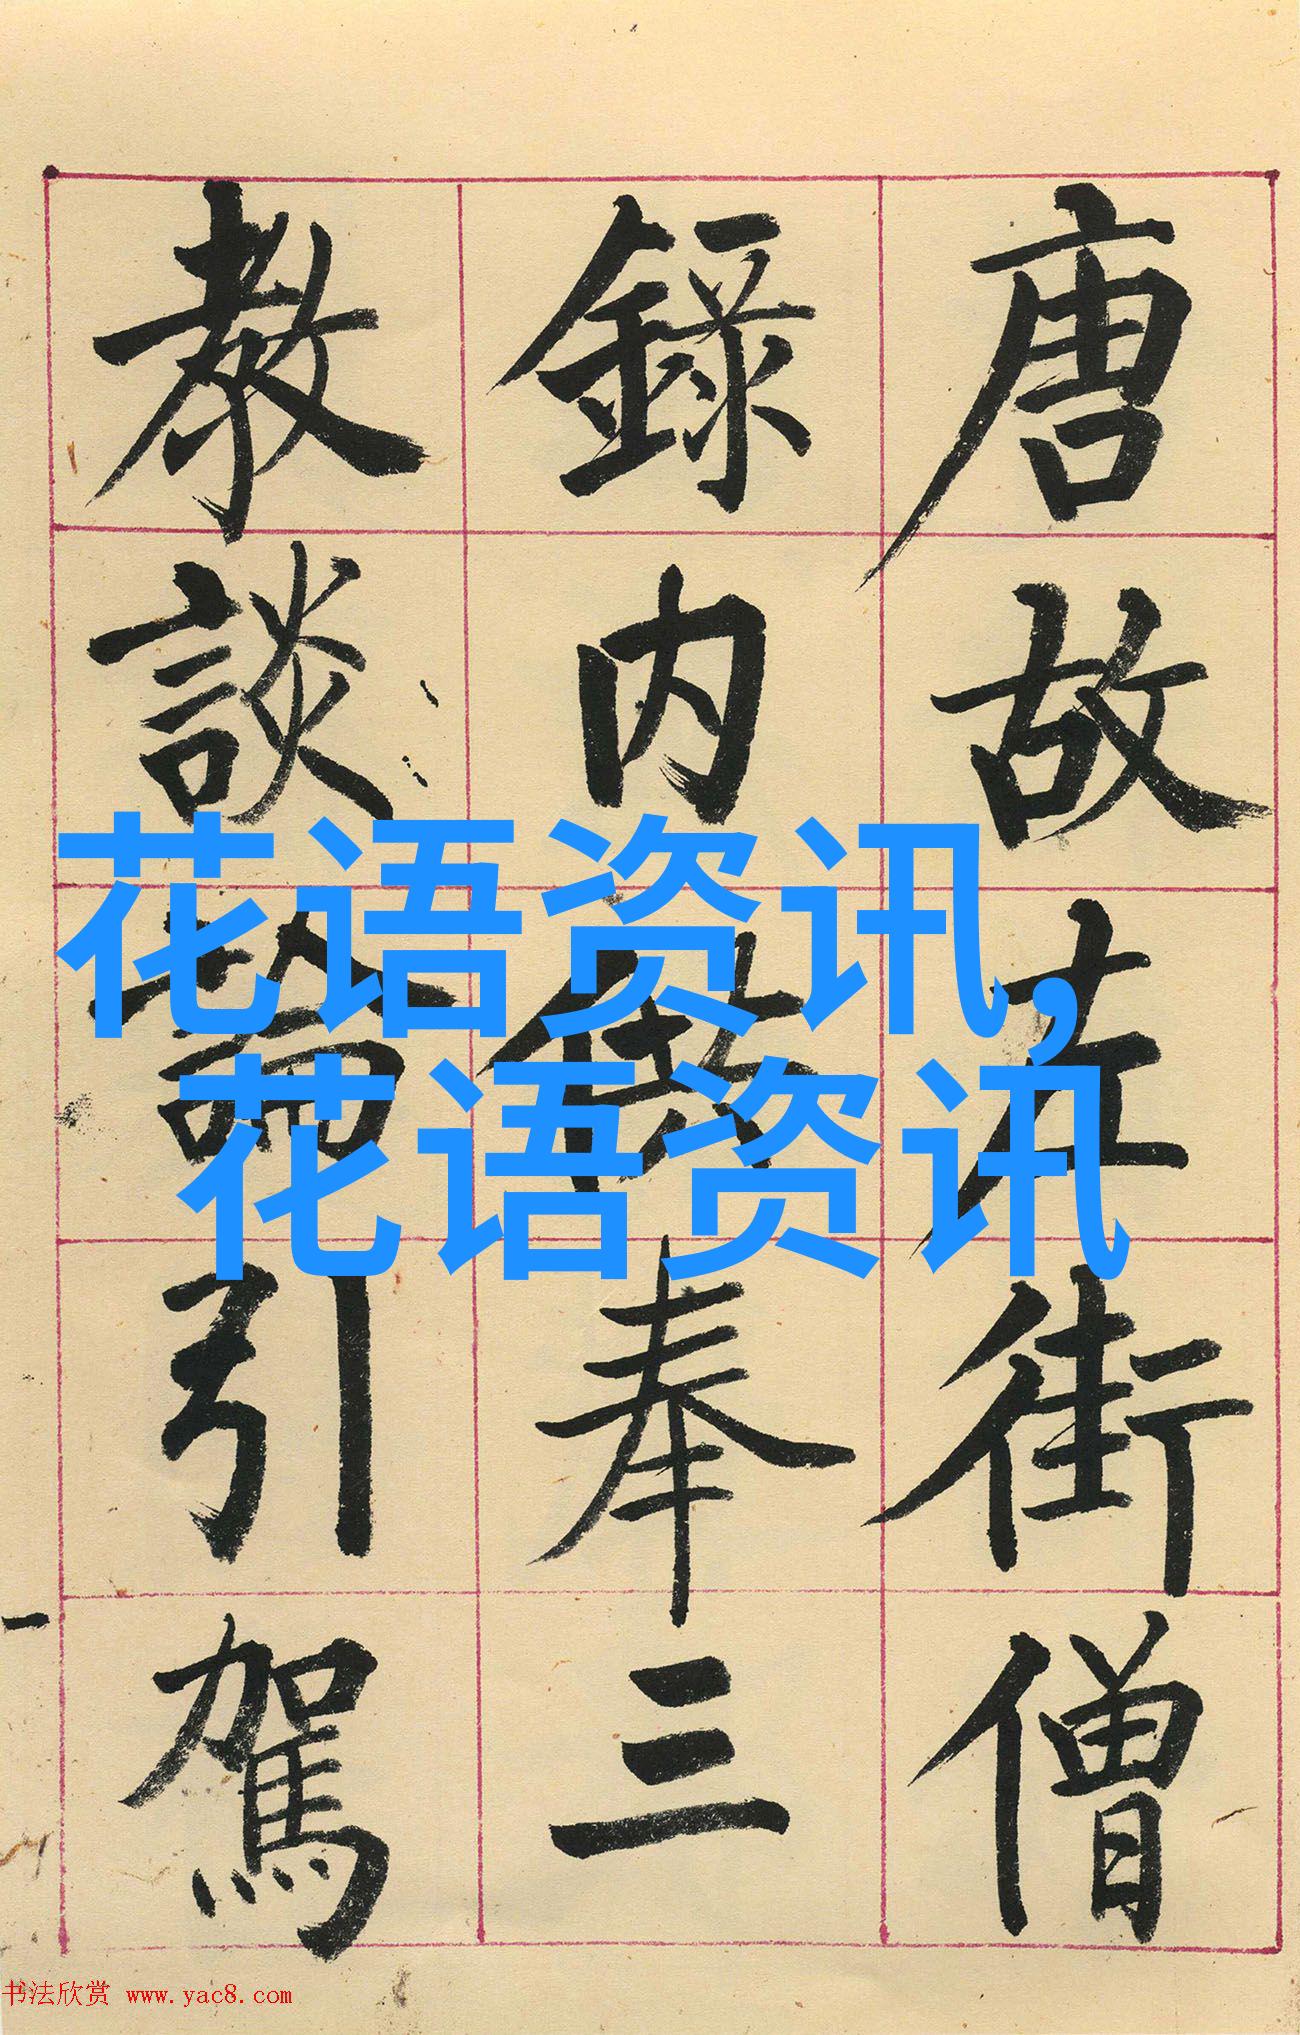 唐故左街僧
錄内供奉三
教談論引駕
花语资讯,
花语资讯
书法欣赏 www.yac8.com